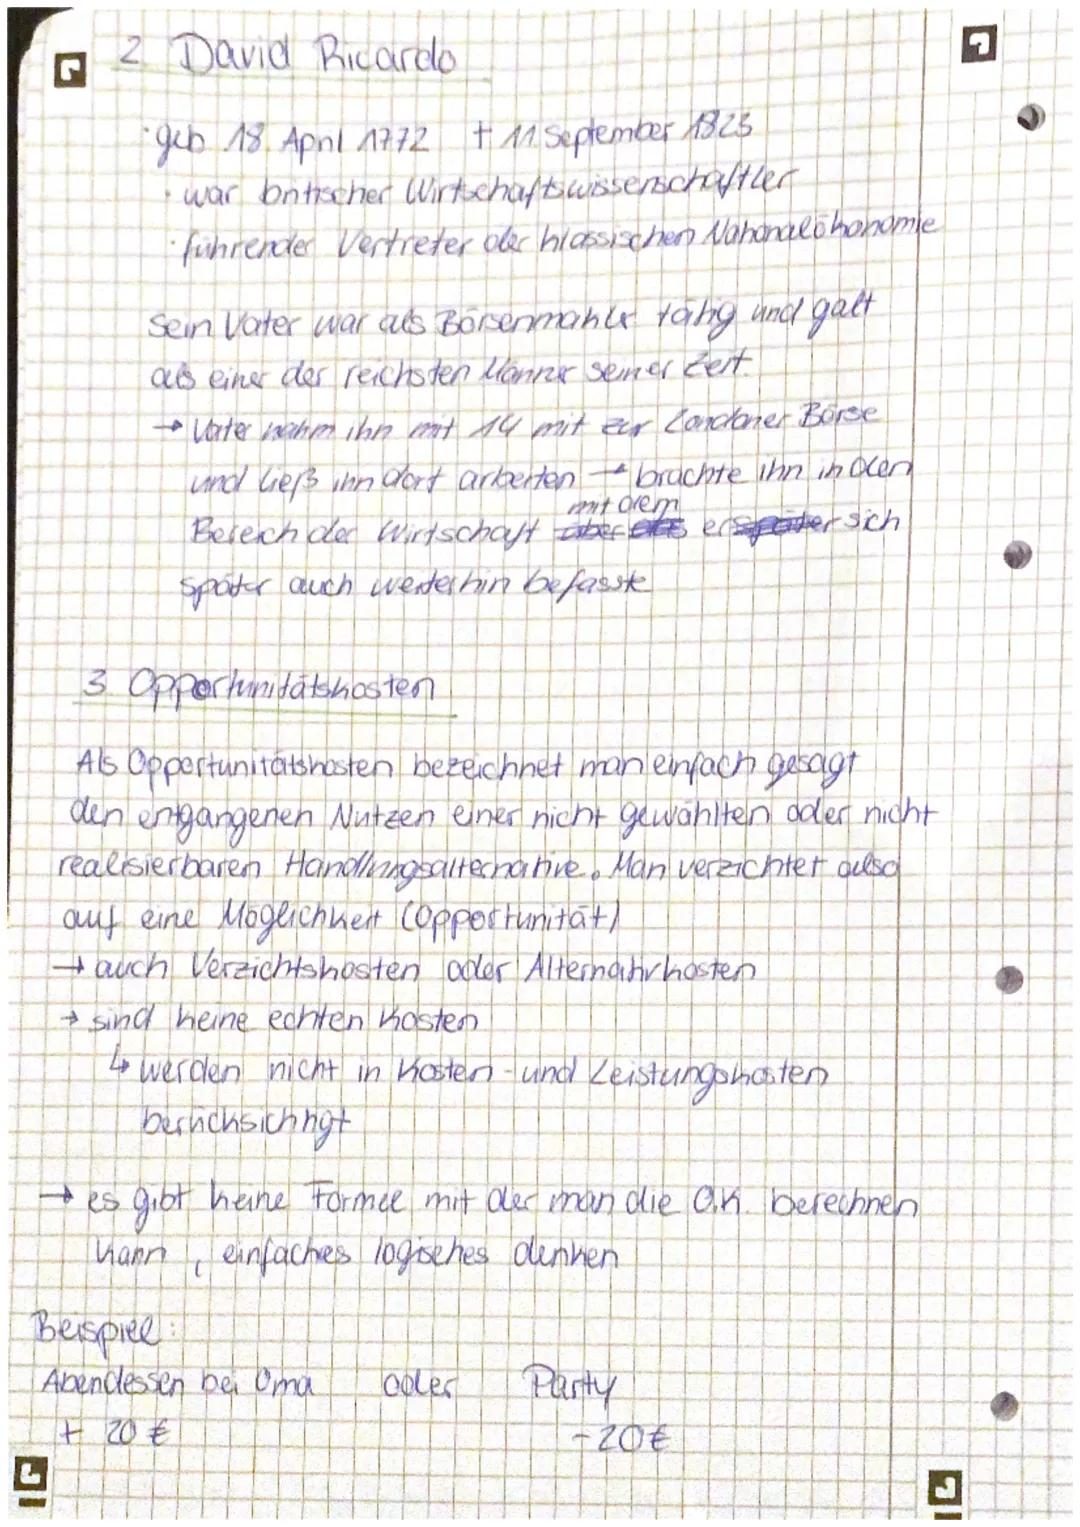 2 David Ricardo
· geb 18. April 1772 + 11 September 1823
· war britischer Wirtschaftswissenschaftler
· führender Vertreter der klassischen Nationalökonomie
Sein Vater war als Börsenmakler tätig und galt
als einer der reichsten Männer seiner Zeit.
→ Vater nahm ihn mit 14 mit zur Londoner Börse
und ließ ihn dort arbeiten → brachte ihn in den
Bereich der Wirtschaft mit dem er sich
später auch weiterhin befasste
3 Opportunitätskosten
Als Opportunitätskosten bezeichnet man einfach gesagt
den entgangenen Nutzen einer nicht gewählten oder nicht
realisierbaren Handlungsalternative. Man verzichtet also
auf eine Möglichkeit (Opportunität)
→ auch Verzichtskosten oder Alternativkosten
→ sind keine echten Kosten
↳ werden nicht in Kosten- und Leistungskosten
berücksichtigt
→ es gibt keine Formel mit der man die O.K. berechnen
kann, einfaches logisches denken
Beispiel:
Abendessen bei Oma oder Party
+ 20 € - 20€